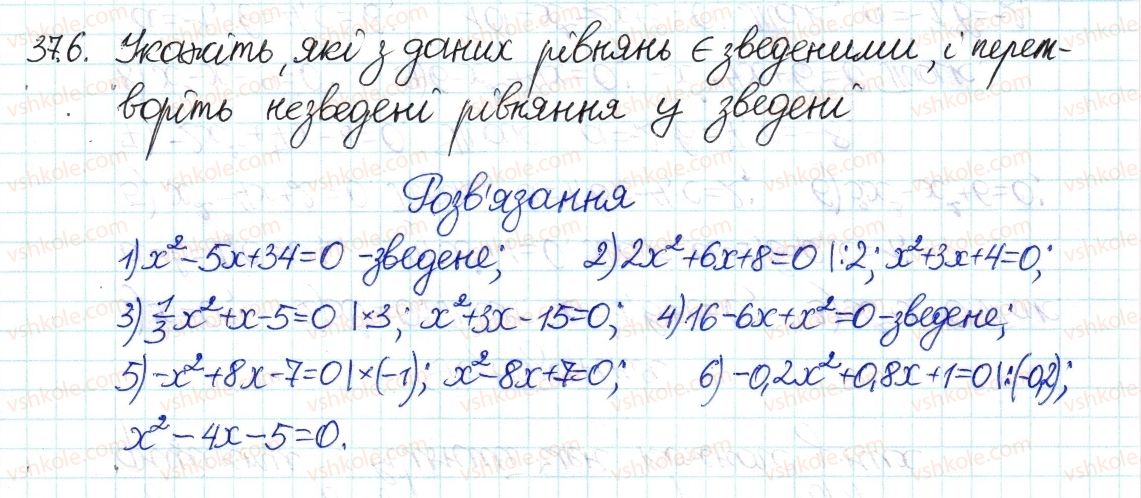 376. Укажіть, які з даних рівнянь є зведеними, і перет-
воріть незведені рівняння у зведені
Розв'язання
1) x² - 5x + 34 = 0 - зведене; 2) 2x² + 6x + 8 = 0 |:2; x² + 3x + 4 = 0;
3) 1/3 x² + x - 5 = 0 |×3; x² + 3x - 15 = 0; 4) 16 - 6x + x² = 0 - зведене;
5) -x² + 8x - 7 = 0 |×(-1); x² - 8x + 7 = 0; 6) -0,2x² + 0,8x + 1 = 0 |:(-0,2);
x² - 4x - 5 = 0.
vshkole.com